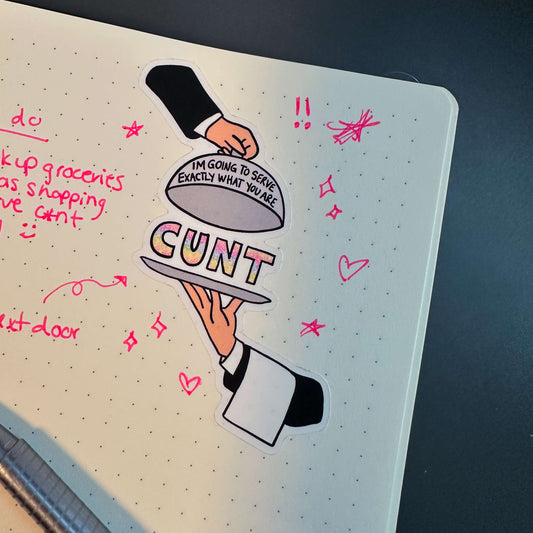 do
kup groceries
as shopping
ve c*nt
! :)
ext door
!!
IM GOING TO SERVE
EXACTLY WHAT YOU ARE
CUNT